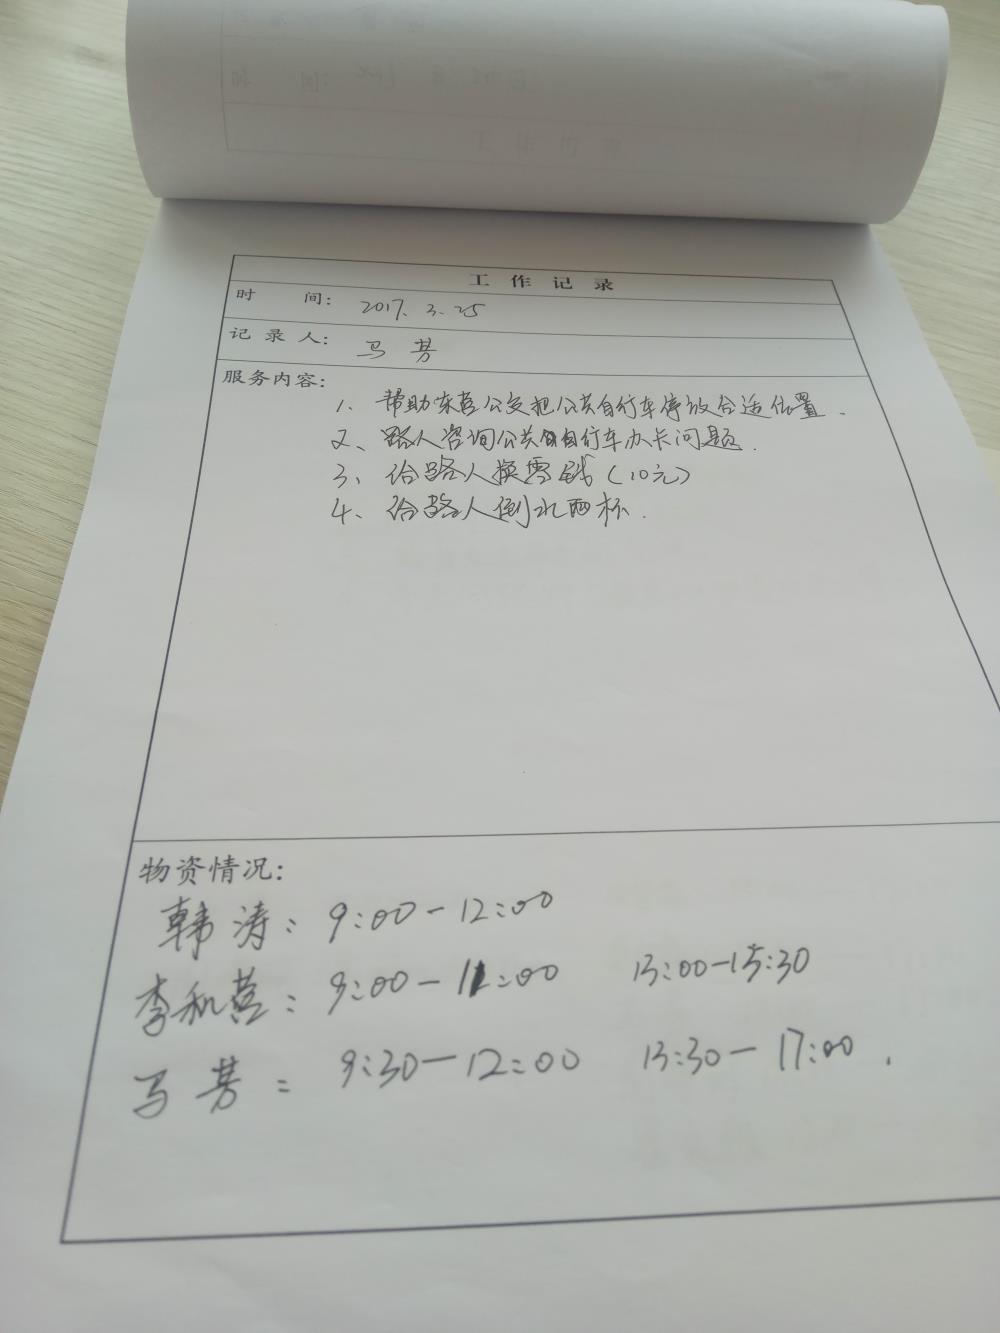 工作记录
时 间: 2017.3.25
记录人: 马芳
服务内容:
1、帮助东营公交把公共自行车停放合适位置.
2、路人咨询公共自行车办卡问题.
3、给路人换零钱(10元)
4、给路人倒水两杯.
物资情况:
韩涛: 9:00-12:00
李和营: 9:00-11:00 13:00-15:30
马芳: 9:30-12:00 13:30-17:00.